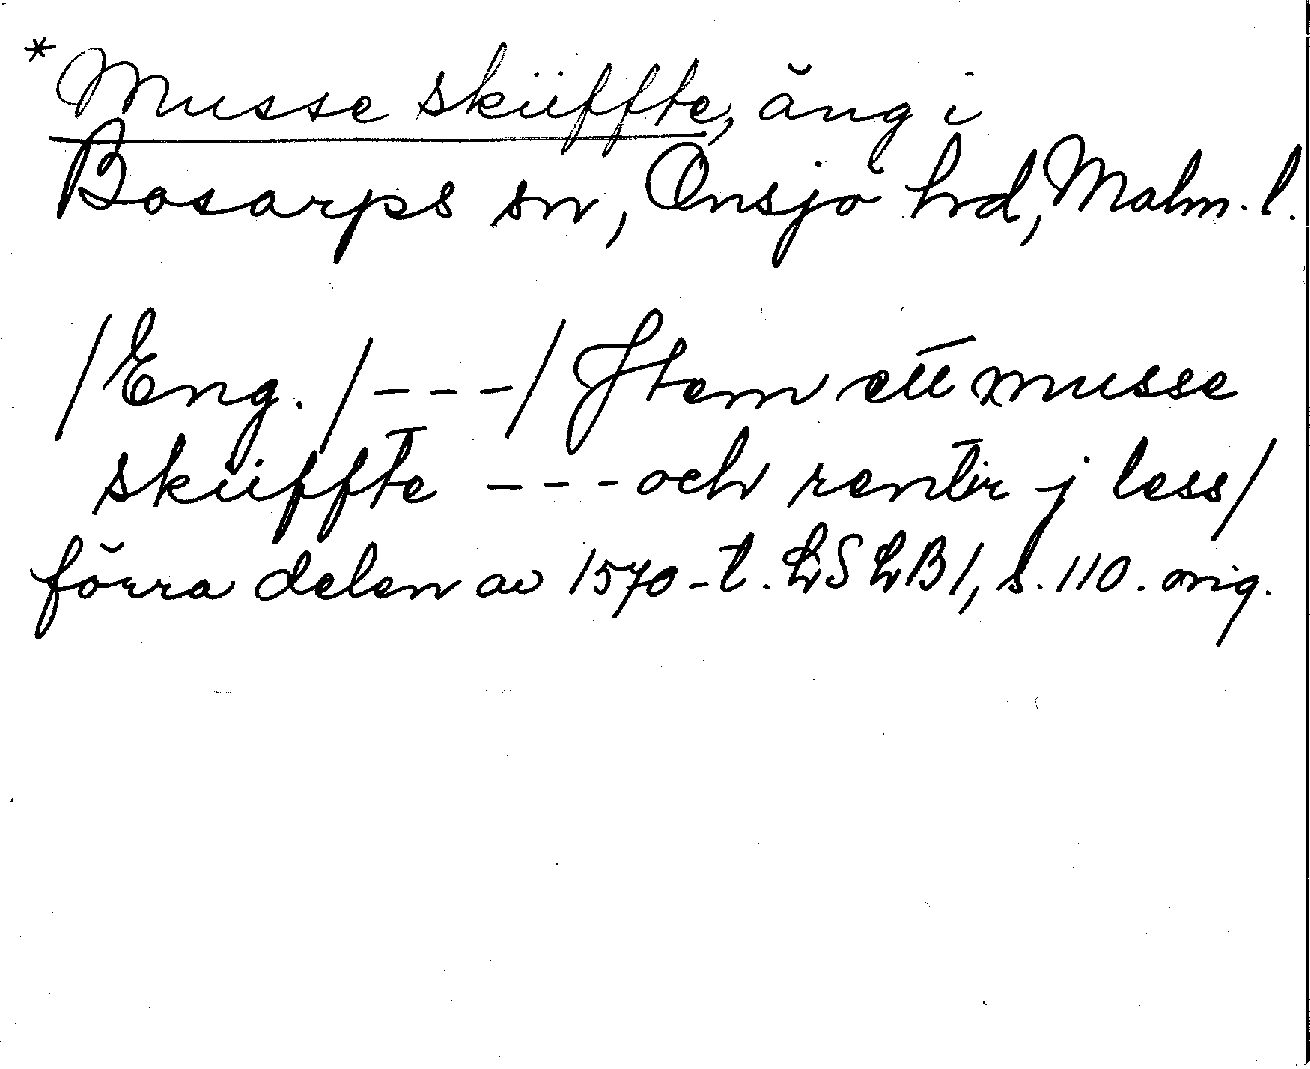 *Musse skiiffte, äng i
Bosarps sn, Onsjö hrd, Malm. l.
/Eng./---/ Jtem ett musse
skiiffte --- och rentir j less/
förra delen av 1570-t. LSLB1, s. 110. orig.